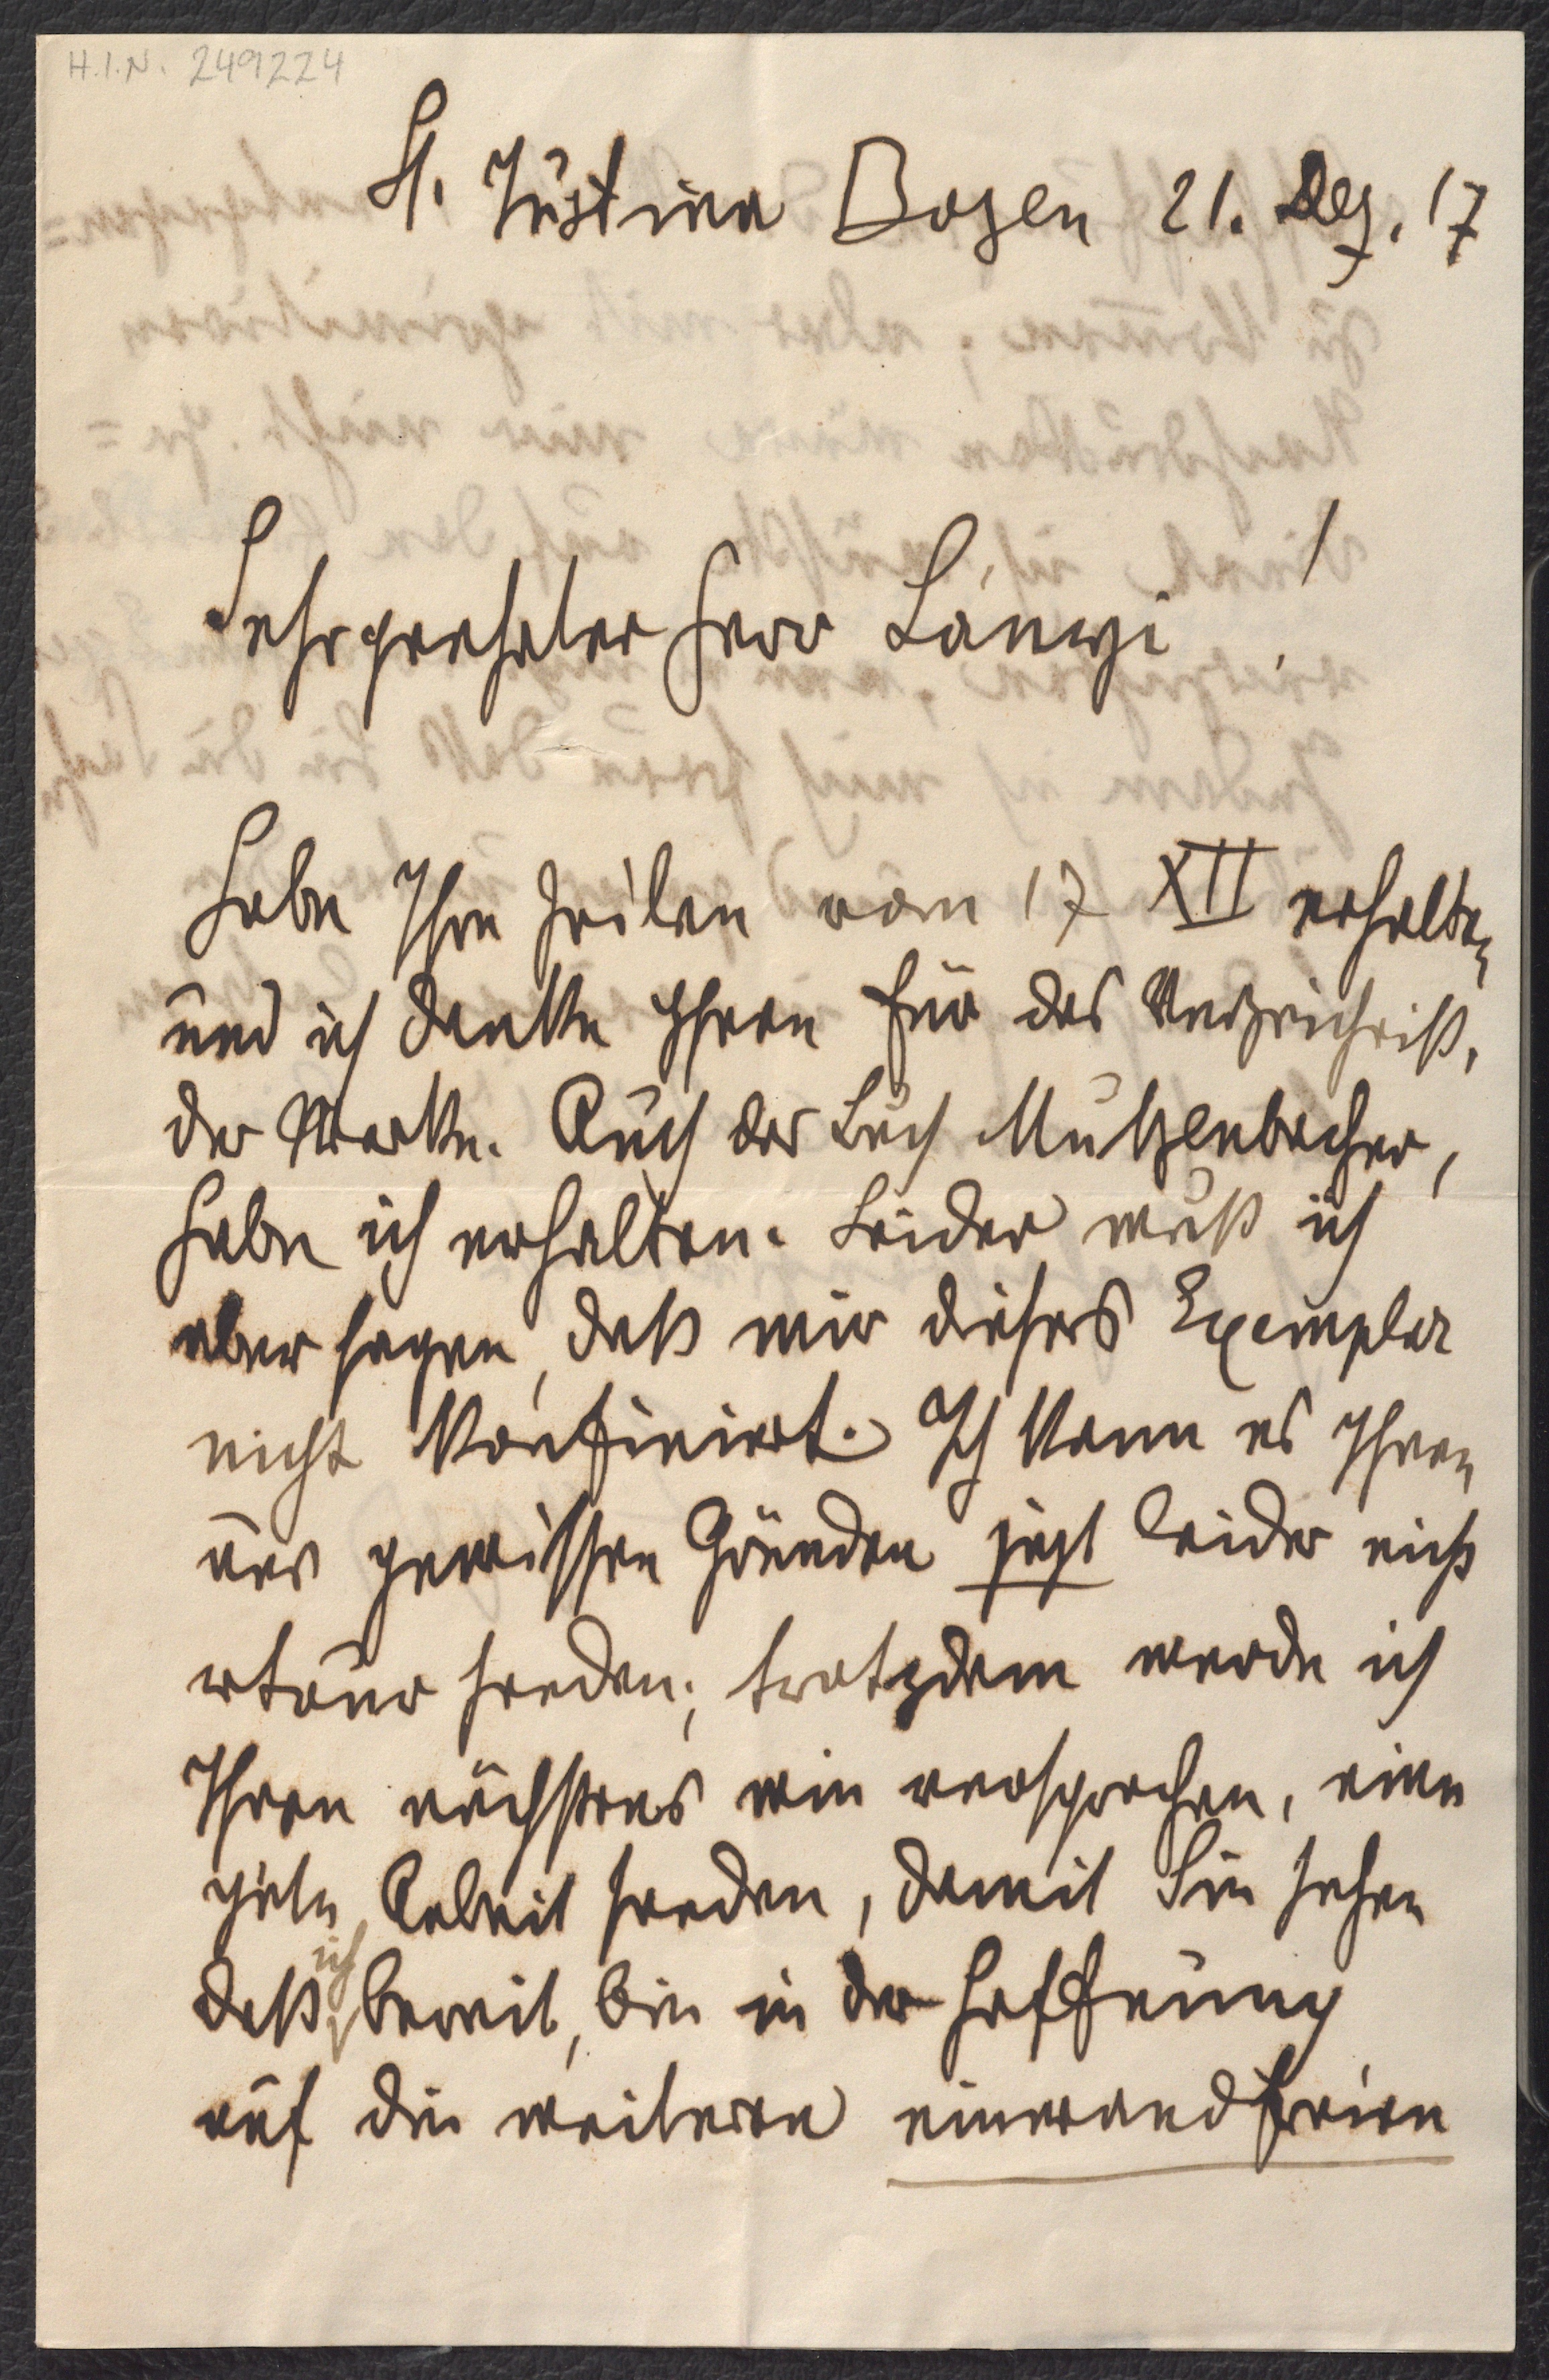 H.I.N. 249224
St. Justina Bozen 21. Dez. 17
Sehrgeehrter Herr Lányi!
Habe Ihre Zeilen vom 17 XII erhalten
und ich danke Ihnen für das Verzeichniß,
der Werke. Auch das Buch Mutzenbacher,
habe ich erhalten. Leider muß ich
aber sagen, daß mir dieses Exemplar
nicht konfiniert. Ich kann es Ihnen
aus gewissen Gründen jezt leider nicht
retour senden; trotzdem werde ich
Ihnen nächstens wie versprochen, eine
gute Arbeit senden, damit Sie sehen
daß ich bereit, bin in der Hoffnung
auf die weiteren einwandfreien